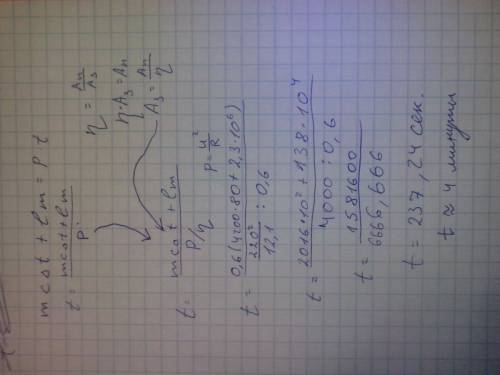 mcΔt + lm = P t
t = mcΔt + lm / P
η = Aп / Aз
η·Aз = Aп
Aз = Aп / η
t = mcΔt + lm / P/η
P = U² / R
t = 0,6(4200·80 + 2,3·10⁶) / 220² / 12,1 : 0,6
t = 2016·10² + 138·10⁴ / 4000 : 0,6
t = 1581600 / 6666,666
t = 237,24 сек.
t ≈ 4 минуты